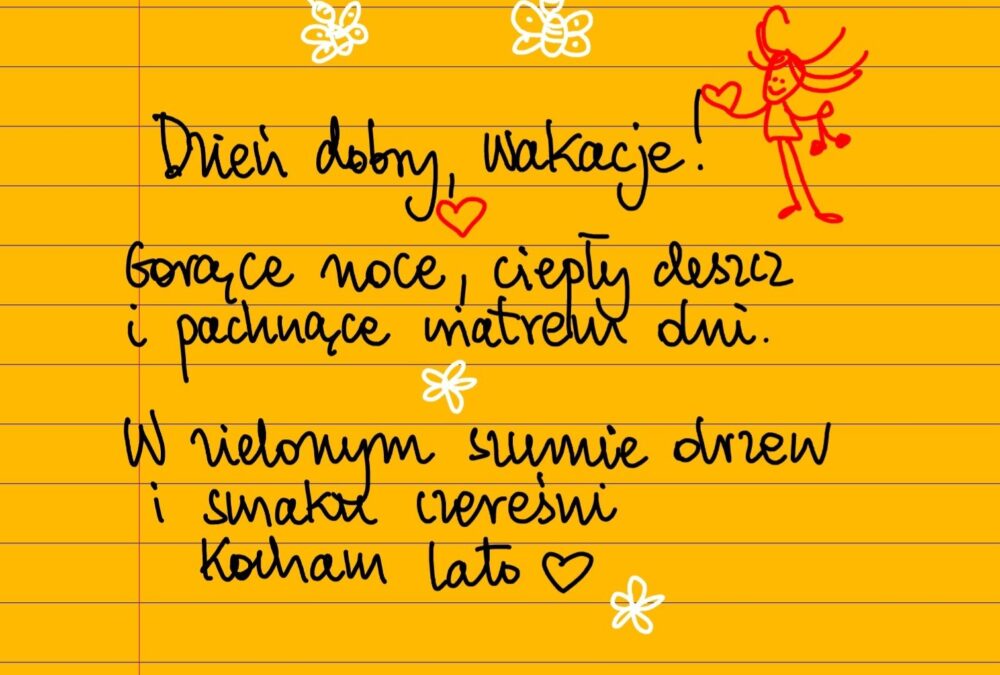 Dzień dobry, wakacje!
Gorące noce, ciepły deszcz
i pachnące wiatrem dni.
W zielonym szumie drzew
i smaku czereśni
Kocham lato